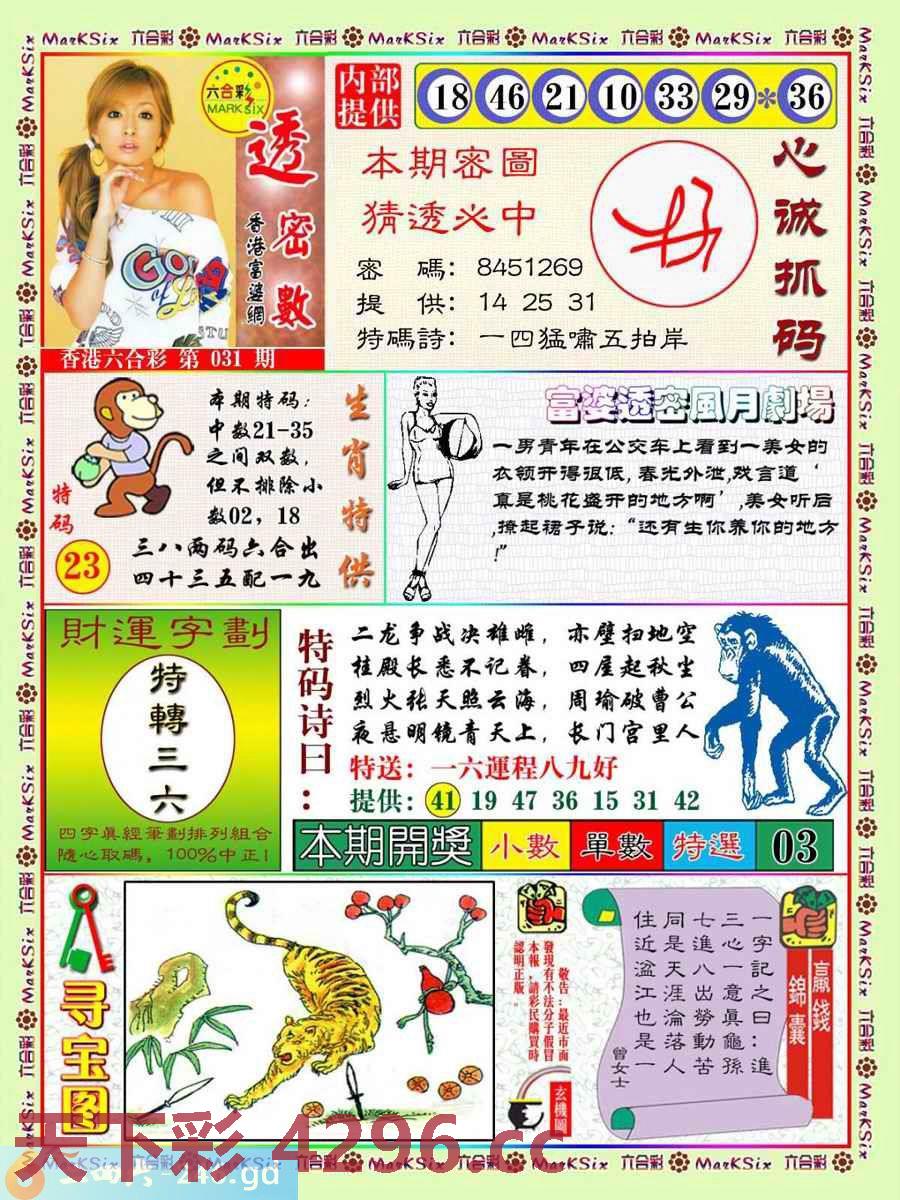 六合彩
MARK six
透密數
香港富婆網
香港六合彩 第 031 期
内部提供
18 46 21 10 33 29 * 36
本期密圖
猜透必中
密 碼: 8451269
提 供: 14 25 31
特碼詩: 一四猛嘯五拍岸
心诚抓码
本期特码:
中数21-35
之间双数,
但不排除小
数02, 18
三八两码六合出
四十三五配一九
特码
23
生肖特供
富婆透密風月劇場
一男青年在公交车上看到一美女的
衣领开得很低, 春光外泄, 戏言道 ‘
真是桃花盛开的地方啊’, 美女听后
,撩起裙子说: “还有生你养你的地方
!”
財運字劃
特轉三六
四字眞經筆劃排列組合
隨心取碼, 100%中正!
特码诗曰:
二龙争战决雄雌, 赤壁扫地空
桂殿长悉不记春, 四屋起秋尘
烈火张天照云海, 周瑜破曹公
夜悬明镜青天上, 长门宫里人
特送: 一六運程八九好
提供: 41 19 47 36 15 31 42
本期開獎 小數 單數 特選 03
寻宝图
敬告:最近市面
發現有不法分子假冒
本報,請彩民購買時
認明正版。
玄機圖
一字記之曰:進
三心一意眞龜孫
七進八出勞動苦
同是天涯淪落人
住近湓江也是一
曾女士
贏錢錦囊
天下彩 4296.cc
MarKSix 六合彩